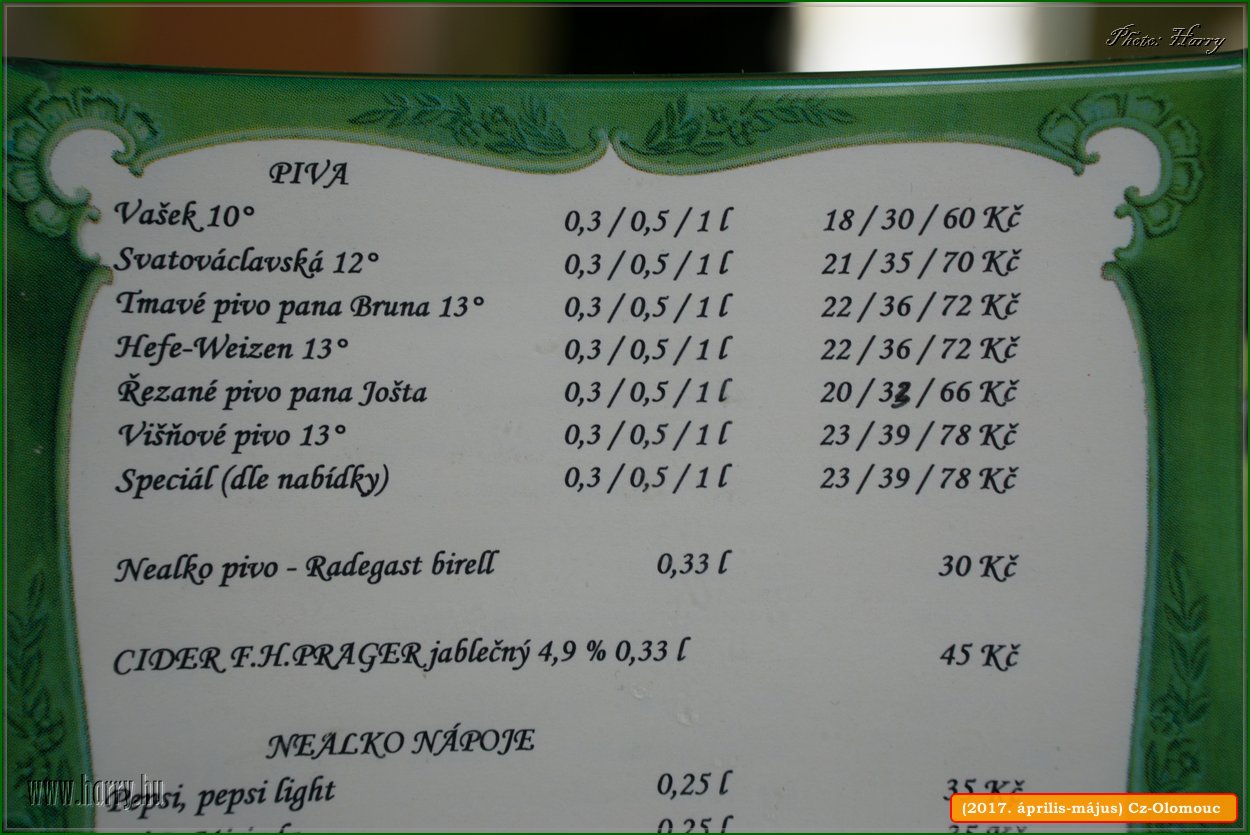 Photo: Harry
PIVA
Vašek 10° 0,3 / 0,5 / 1 l 18 / 30 / 60 Kč
Svatováclavská 12° 0,3 / 0,5 / 1 l 21 / 35 / 70 Kč
Tmavé pivo pana Bruna 13° 0,3 / 0,5 / 1 l 22 / 36 / 72 Kč
Hefe-Weizen 13° 0,3 / 0,5 / 1 l 22 / 36 / 72 Kč
Řezané pivo pana Jošta 0,3 / 0,5 / 1 l 20 / 33 / 66 Kč
Višňové pivo 13° 0,3 / 0,5 / 1 l 23 / 39 / 78 Kč
Speciál (dle nabídky) 0,3 / 0,5 / 1 l 23 / 39 / 78 Kč
Nealko pivo - Radegast birell 0,33 l 30 Kč
CIDER F.H.PRAGER jablečný 4,9 % 0,33 l 45 Kč
NEALKO NÁPOJE
Pepsi, pepsi light 0,25 l 35 Kč
www.harry.hu
0,25 l
(2017. április-május) Cz-Olomouc